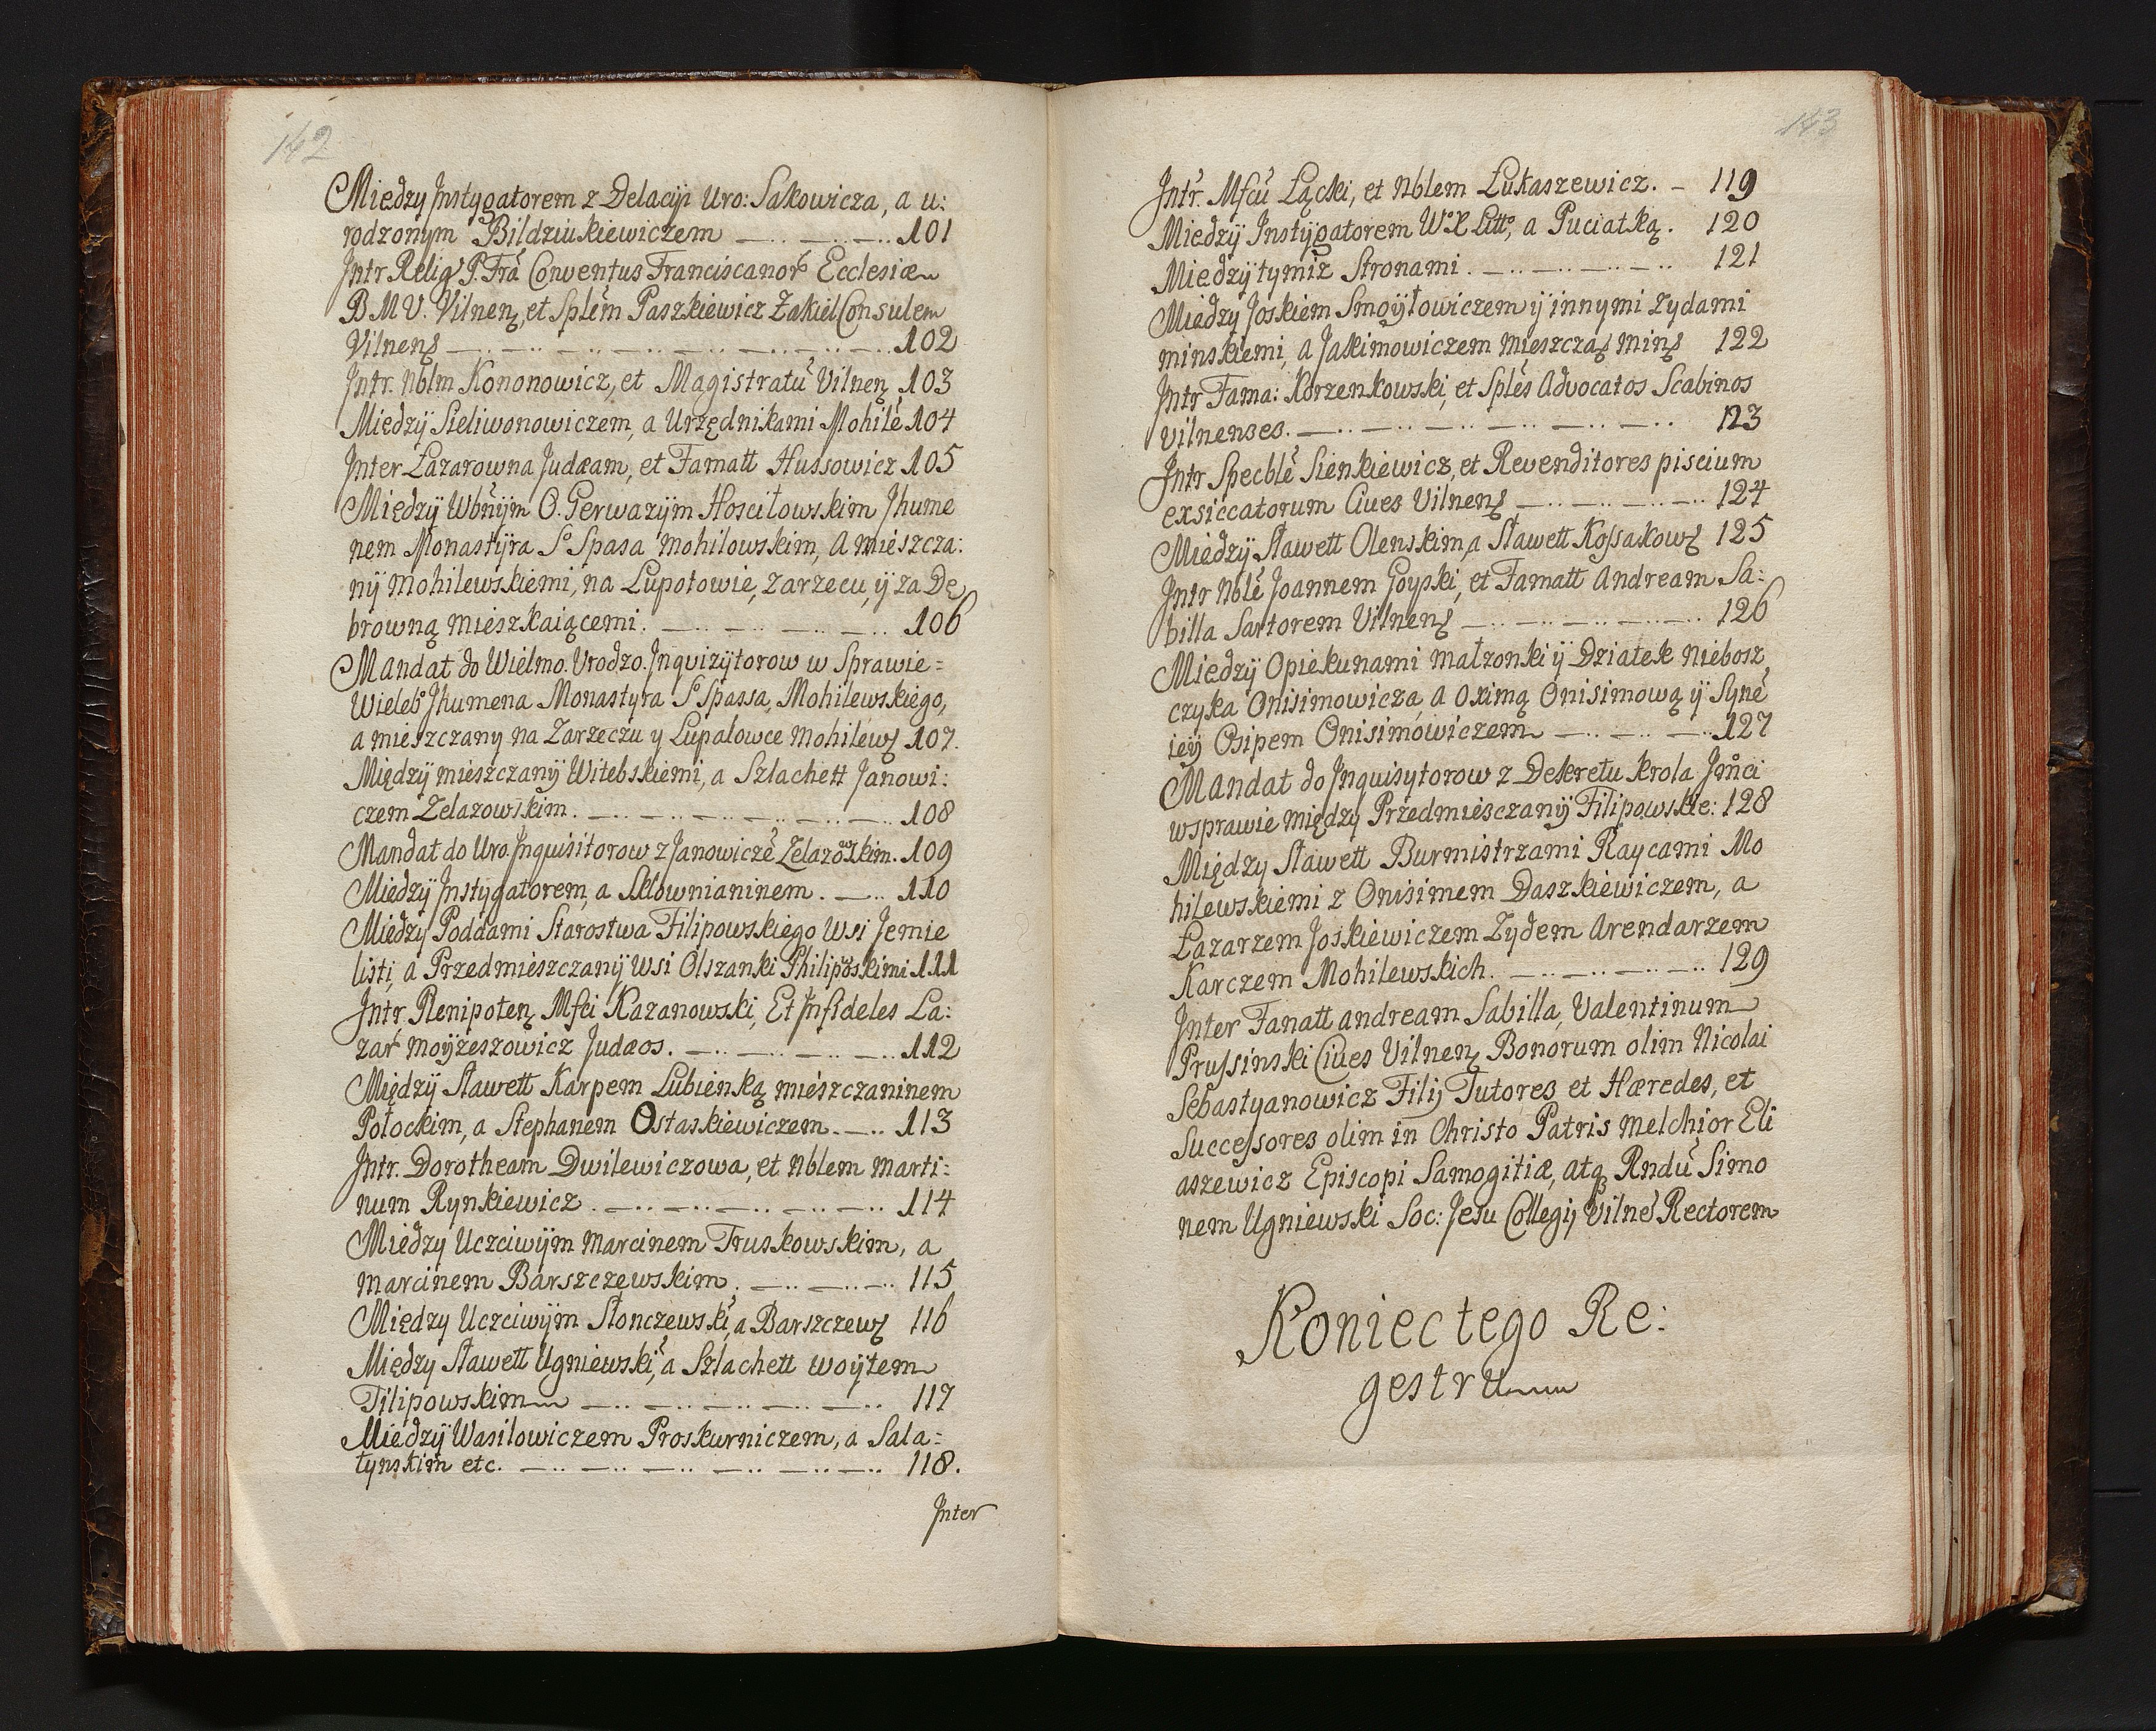 142
Między Instygatorem z Delacyi Uro: Sakowicza, a u:
rodzonym Bildziukiewiczem 101
Intr Relig P. Fra Conventus Franciscanor Ecclesiæ
B M V. Vilnen, et Splem Paszkiewicz Zakiel Consulem
Vilnen 102
Intr. Nblm Kononowicz, et Magistratu Vilnen 103
Miedzÿ Sieliwonowiczem, a Urzędnikami Mohile 104
Inter Łazarowna Judæam, et Famatt Hussowicz 105
Międzÿ Wbnÿm O. Gerwazÿm Hosciłowskim Jhume
nem Monastÿra So Spasa Mohilowskim, A mieszcza:
nÿ Mohilewskiemi, na Łupołowie, Zarzecu, ÿ za Dę
browną mieszkaiącemi. 106
Mandat do Wielmo. Urodzo. Inqvizÿtorow w Sprawie=
Wieleb Jhumena Monastyra So Spassa, Mohilewskiego,
a mieszczany na Zarzeczu y Łupalowce Mohilew 107.
Międzÿ mieszczanÿ Witebskiemi, a Szlachett Janowi:
czem Zelazowskim. 108
Mandat do Uro. Inquisitorow z Janowicze Zelazowskim. 109
Miedzÿ Instÿgatorem, a Skłownianinem. 110
Miedzy Poddami Starostwa Filipowskiego Wsi Jemie
listi, a Przedmieszczanÿ Wsi Olszanki Philiposkimi 111
Intr. Plenipoten Mfci Kazanowski, Et Infideles La:
zar Moÿzeszowicz Judæos. 112
Międzÿ Sławett Karpem Lubienką mieszczaninem
Połockim, a Stephanem Ostaskiewiczem. 113
Intr. Dorotheam Dwilewiczowa, et Nblem Marti:
num Rynkiewicz. 114
Miedzy Uczciwÿm Marcinem Truskowskim, a
Marcinem Barszczewskim. 115
Między Uczciwÿm Słonczewski, a Barszczew 116
Między Sławett Ugniewski, a Szlachett woÿtem
Filipowskim 117
Miedzÿ Wasilowiczem Proskurniczem, a Sala=
tynskim etc. 118.
Inter
143
Intr. Mfcu Łącki, et Nblem Łukaszewicz. 119
Miedzÿ Instÿgatorem W X Litto, a Puciatką. 120
Miedzÿ tymiz Stronami. 121
Miedzy Joskiem Smoÿłowiczem ÿ innymi zydami
minskiemi, a Jakimowiczem mieszcza mins 122
Intr Fama: Korzenkowski, et Sples Advocatos Scabinos
vilnenses. 123
Intr Specble Sienkiewicz, et Revenditores piscium
exsiccatorum Cives Vilnens 124
Miedzÿ Sławett Olenskim, a Sławett Kossakows 125
Intr Nble Joannem Goyski, et Famatt Andream Sa:
billa Sartorem Vilnens 126
Miedzÿ Opiekunami małzonki ÿ Dziatek niebosz
czyka Onisimowicza, a Oximą Onisimową ÿ Syne
ieÿ Osipem Onisimowiczem 127
Mandat do Inquisytorow z Dekretu Krola Jmci
wsprawie między Przedmiesczanÿ Filipowskie: 128
Między Sławett Burmistrzami Raycami Mo
hilewskiemi z Onisimem Daszkiewiczem, a
Łazarzem Joskiewiczem Zydem Arendarzem
Karczem Mohilewskich. 129
Inter Fanatt andream Sabilla, Valentinum
Prussinski Cives Vilnen, Bonorum olim Nicolai
Sebastyanowicz Filij Tutores et Hæredes, et
Successores olim in Christo Patris Melchior Eli
aszewicz Episcopi Samogitiæ, atq Rndu Simo
nem Ugniewski Soc: Jesu Collegij Vilne Rectorem
Koniec tego Re:
gestru